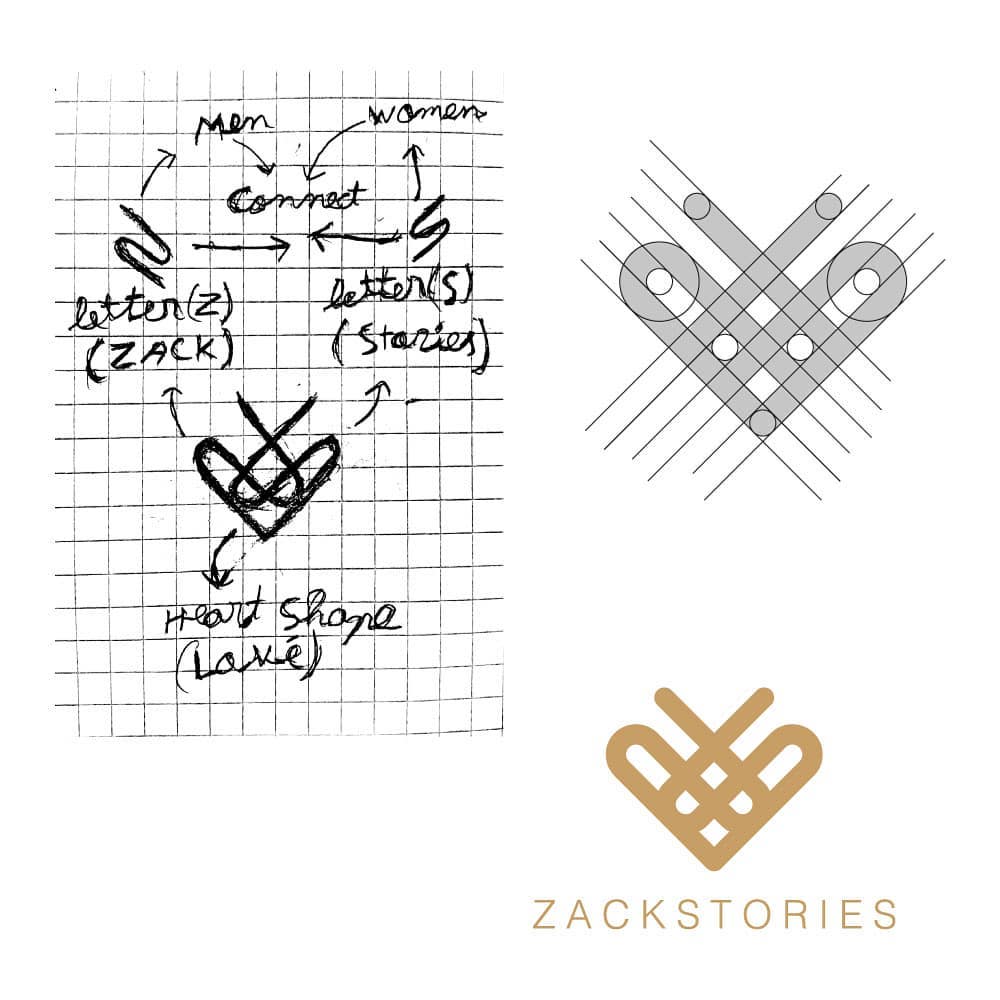 Men
Women
Connect
letter(Z)
(ZACK)
letter(S)
(Stories)
Heart Shape
(Love)
ZACKSTORIES